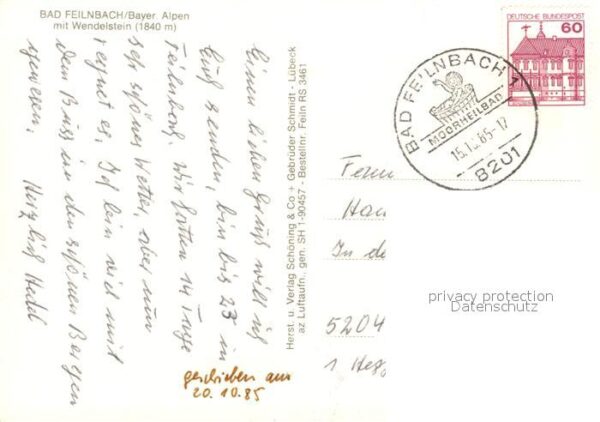 BAD FEILNBACH/Bayer. Alpen
mit Wendelstein (1840 m)
Einen lieben Gruß will ich
Euch senden, bin bis 23 in
Feilnbach. Wir hatten 14 Tage
sehr schönes Wetter, aber nun
regnet es. Ich bin viel mit
dem Bus in den schönen Bergen
gewesen. Herzlich Hedel
geschrieben am
20.10.85
Herst. u. Verlag Schöning & Co + Gebrüder Schmidt - Lübeck
az Luftaufn., gen. SH 1-90457 - Bestellnr. Feiln RS 3461
DEUTSCHE BUNDESPOST
60
BAD FEILNBACH 1
MOORHEILBAD
85-17
8201
Fern
Han
In de
5204
1 Heg
privacy protection
Datenschutz